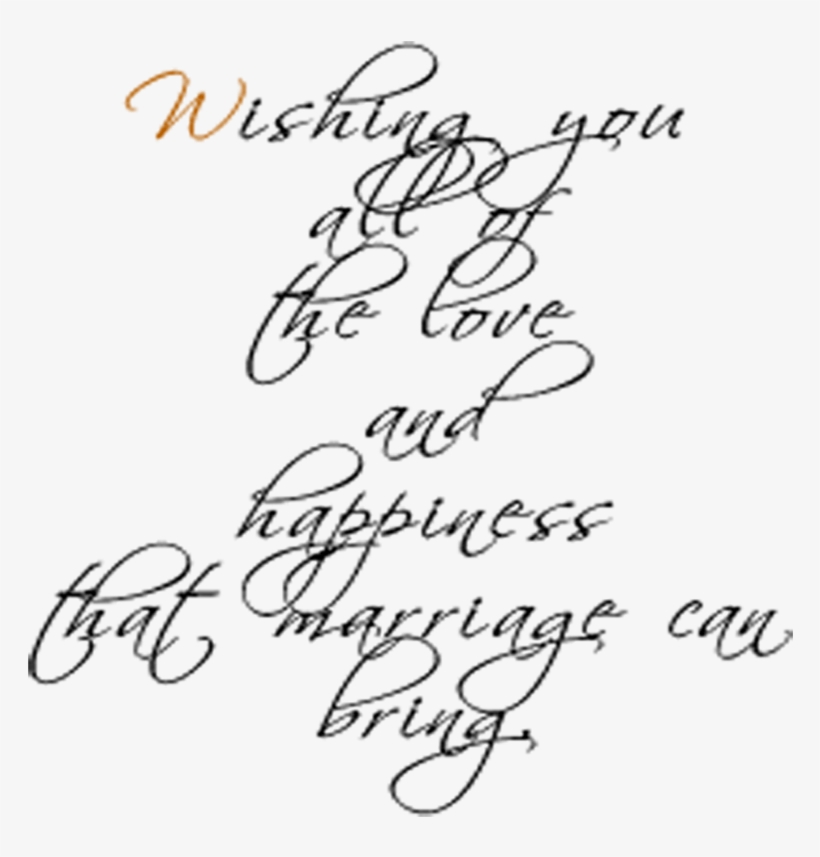 Wishing you
all of
the love
and
happiness
that marriage can
bring.